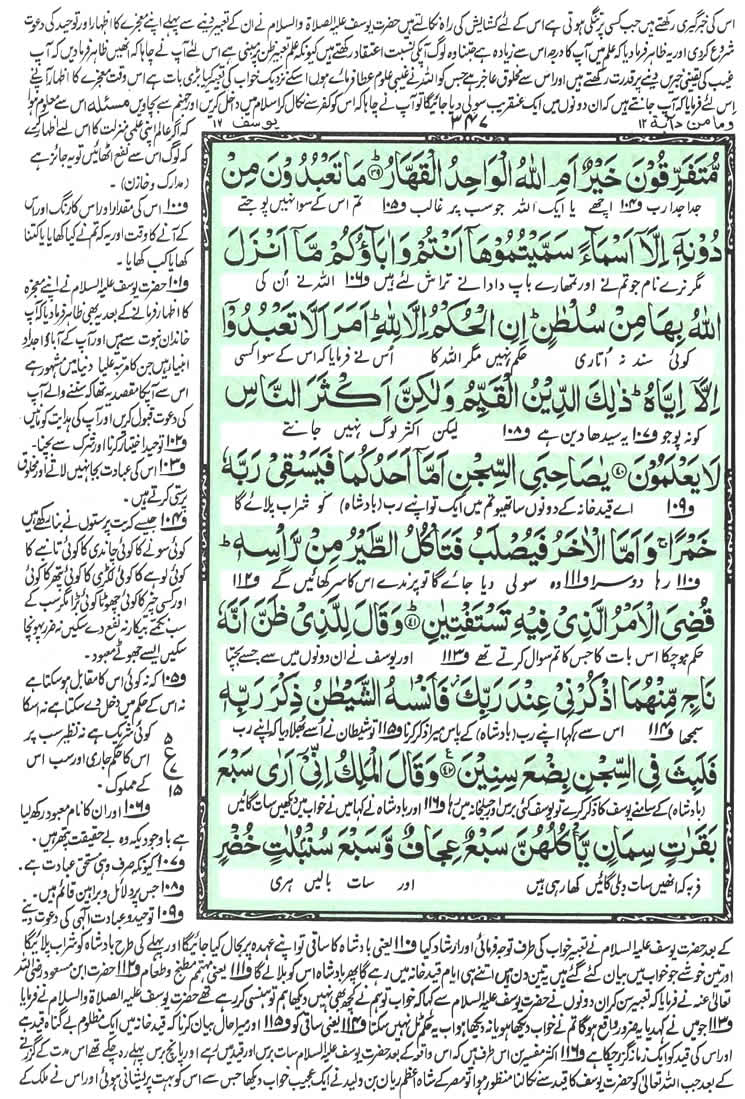 اس کی خبر گیری رکھتے ہیں جب کسی پر تنگی ہوتی ہے اس کے لئے کشائش کی راہ نکالتے ہیں حضرت یوسف علیہ الصلاۃ والسلام نے ان کے تعبیر دینے سے پہلے اپنے معجزے کا اظہار اور توحید کی دعوت
شروع کردی اور یہ ظاہر فرمادیا کہ علم میں آپ کا درجہ اس سے زیادہ ہے جتنا وہ لوگ آپکی نسبت اعتقاد رکھتے ہیں کیونکہ علم تعبیر ظن پر مبنی ہے اس لئے آپ نے چاہا کہ انھیں ظاہر فرمادیں کہ آپ
غیب کی یقینی خبریں دینے پر قدرت رکھتے ہیں اور اس سے مخلوق عاجز ہے جس کو اللہ نے غیبی علوم عطا فرمائے ہوں اسکے نزدیک خواب کی تعبیر کیا بڑی بات ہے اس وقت معجزے کا اظہار آپنے
اس لئے فرمایا کہ آپ جانتے تھے کہ ان دونوں میں ایک عنقریب سولی دیا جائیگا تو آپ نے چاہا کہ اس کو کفر سے نکال کر اسلام میں داخل کریں اور جہنم سے بچادیں مسئلہ اس سے معلوم ہوا
وما من دابۃ ۱۲
۳۴۷
یوسف ۱۷
کہ اگر عالم اپنی علمی منزلت کا اس لئے اظہار کرے
کہ لوگ اس سے نفع اٹھائیں تو یہ جائز ہے
(مدارک و خازن)۔
و۱۰۰ اس کی مقدار اور اس کا رنگ اور اس
کے آنے کا وقت اور یہ کہ تم نے کیا کھایا یا کتنا
کھایا کب کھایا۔
و۱۰۱ حضرت یوسف علیہ السلام نے اپنے معجزہ
کا اظہار فرمانے کے بعد یہ بھی ظاہر فرمادیا کہ آپ
خاندان نبوت سے ہیں اور آپ کے آباؤ اجداد
انبیا ہیں جن کا مرتبہ علیا دنیا میں مشہور ہے
اس سے آپکا مقصد یہ تھا کہ سننے والے آپ
کی دعوت قبول کریں اور آپ کی ہدایت کو مانیں
و۱۰۲ توحید اختیار کرنا اور شرک سے بچنا۔
و۱۰۳ اس کی عبادت بجا نہیں لاتے اور مخلوق
پرستی کرتے ہیں۔
و۱۰۴ جیسے کہ بت پرستوں نے بنا رکھے ہیں
کوئی سونے کا کوئی چاندی کا کوئی تانبے کا
کوئی لوہے کا کوئی لکڑی کا کوئی پتھر کا کوئی
اور کسی چیز کا کوئی چھوٹا کوئی بڑا مگر سب کے
سب نکمے بیکار نہ نفع دے سکیں نہ ضرر پہونچا
سکیں ایسے جھوٹے معبود۔
و۱۰۵ کہ نہ کوئی اس کا مقابل ہو سکتا ہے
نہ اس کے حکم میں دخل دے سکتا ہے نہ اسکا
کوئی شریک ہے نہ نظیر سب پر
اس کا حکم جاری اور سب اس
کے مملوک۔
۵
ع
۷
۱۵
و۱۰۶ اور ان کا نام معبود رکھ لیا
ہے باوجودیکہ وہ بے حقیقت پتھر ہیں۔
و۱۰۷ کیونکہ صرف وہی مستحق عبادت ہے۔
و۱۰۸ جس پر دلائل و براہین قائم ہیں۔
و۱۰۹ توحید و عبادت الٰہی کی دعوت دینے
مُّتَفَرِّقُوْنَ خَيْرٌ اَمِ اللّٰهُ الْوَاحِدُ الْقَهَّارُ ﴿۳۹﴾ مَا تَعْبُدُوْنَ مِنْ
جدا جدا رب و۱۰۴ اچھے یا ایک اللہ جو سب پر غالب و۱۰۵ تم اس کے سوا نہیں پوجتے
دُوْنِهٖۤ اِلَّاۤ اَسْمَآءً سَمَّيْتُمُوْهَاۤ اَنْتُمْ وَاٰبَآؤُكُمْ مَّاۤ اَنْزَلَ
مگر نرے نام جو تم نے اور تمھارے باپ دادا نے تراش لئے ہیں و۱۰۶ اللہ نے اُن کی
اللّٰهُ بِهَا مِنْ سُلْطٰنٍ ؕ اِنِ الْحُكْمُ اِلَّا لِلّٰهِ ؕ اَمَرَ اَلَّا تَعْبُدُوْۤا
کوئی سند نہ اُتاری حکم نہیں مگر اللہ کا اُس نے فرمایا کہ اس کے سوا کسی
اِلَّاۤ اِيَّاهُ ؕ ذٰلِكَ الدِّيْنُ الْقَيِّمُ وَلٰكِنَّ اَكْثَرَ النَّاسِ
کو نہ پوجو و۱۰۷ یہ سیدھا دین ہے و۱۰۸ لیکن اکثر لوگ نہیں جانتے
لَا يَعْلَمُوْنَ ﴿۴۰﴾ يٰصَاحِبَيِ السِّجْنِ اَمَّاۤ اَحَدُكُمَا فَيَسْقِيْ رَبَّهٗ
و۱۰۹ اے قید خانہ کے دونوں ساتھیو تم میں ایک تو اپنے رب (بادشاہ) کو شراب پلائے گا
خَمْرًا ۚ وَاَمَّا الْاٰخَرُ فَيُصْلَبُ فَتَاْكُلُ الطَّيْرُ مِنْ رَّاْسِهٖ ؕ
و۱۱۰ رہا دوسرا و۱۱۱ وہ سولی دیا جائے گا تو پرندے اس کا سر کھائیں گے و۱۱۲
قُضِيَ الْاَمْرُ الَّذِيْ فِيْهِ تَسْتَفْتِيٰنِ ﴿۴۱﴾ وَقَالَ لِلَّذِيْ ظَنَّ اَنَّهٗ
حکم ہوچکا اس بات کا جس کا تم سوال کرتے تھے و۱۱۳ اور یوسف نے ان دونوں میں سے جسے بچتا
نَاجٍ مِّنْهُمَا اذْكُرْنِيْ عِنْدَ رَبِّكَ ؗ فَاَنْسٰىهُ الشَّيْطٰنُ ذِكْرَ رَبِّهٖ
سمجھا و۱۱۴ اس سے کہا اپنے رب (بادشاہ) کے پاس میرا ذکر کرنا و۱۱۵ تو شیطان نے اُسے بھلا دیا کہ اپنے رب
فَلَبِثَ فِي السِّجْنِ بِضْعَ سِنِيْنَ ﴿۴۲﴾ وَقَالَ الْمَلِكُ اِنِّيْۤ اَرٰى سَبْعَ
(بادشاہ) کے سامنے یوسف کا ذکر کرے تو یوسف کئی برس اور جیلخانہ میں رہا و۱۱۶ اور بادشاہ نے کہا میں نے خواب میں دیکھیں سات گائیں
بَقَرٰتٍ سِمَانٍ يَّاْكُلُهُنَّ سَبْعٌ عِجَافٌ وَّسَبْعَ سُنْۢبُلٰتٍ خُضْرٍ
فربہ کہ انھیں سات دبلی گائیں کھا رہی ہیں اور سات بالیں ہری
کے بعد حضرت یوسف علیہ السلام نے تعبیر خواب کی طرف توجہ فرمائی اور ارشاد کیا و۱۱۰ یعنی بادشاہ کا ساقی تو اپنے عہدہ پر بحال کیا جائیگا اور پہلے کی طرح بادشاہ کو شراب پلائیگا
اور تین خوشے جو خواب میں بیان کئے گئے ہیں یہ تین دن ہیں اتنے ہی ایام قید خانہ میں رہے گا پھر بادشاہ اس کو بلالے گا و۱۱۱ یعنی مہتمم مطبخ و طعام و۱۱۲ حضرت ابن مسعود رضی اللہ
تعالیٰ عنہ نے فرمایا کہ تعبیر سن کر ان دونوں نے حضرت یوسف علیہ السلام سے کہا کہ خواب تو ہم نے کچھ بھی نہیں دیکھا ہم تو ہنسی کر رہے تھے حضرت یوسف علیہ الصلاۃ والسلام نے فرمایا
و۱۱۳ جو میں نے کہدیا یہ ضرور واقع ہوگا تم نے خواب دیکھا ہو یا نہ دیکھا ہو اب یہ حکم ٹل نہیں سکتا و۱۱۴ یعنی ساقی کو و۱۱۵ اور میرا حال بیان کرنا کہ قید خانے میں ایک مظلوم بے گناہ قید ہے
اور اس کی قید کو ایک زمانہ گزر چکا ہے و۱۱۶ اکثر مفسرین اس طرف ہیں کہ اس واقعہ کے بعد حضرت یوسف علیہ السلام سات برس اور قید میں رہے اور پانچ برس پہلے رہ چکے تھے اس مدت کے گزرنے
کے بعد جب اللہ تعالیٰ کو حضرت یوسف کا قید سے نکالنا منظور ہوا تو مصر کے شاہ اعظم ریان بن ولید نے ایک عجیب خواب دیکھا جس سے اس کو بہت پریشانی ہوئی اور اس نے ملک کے